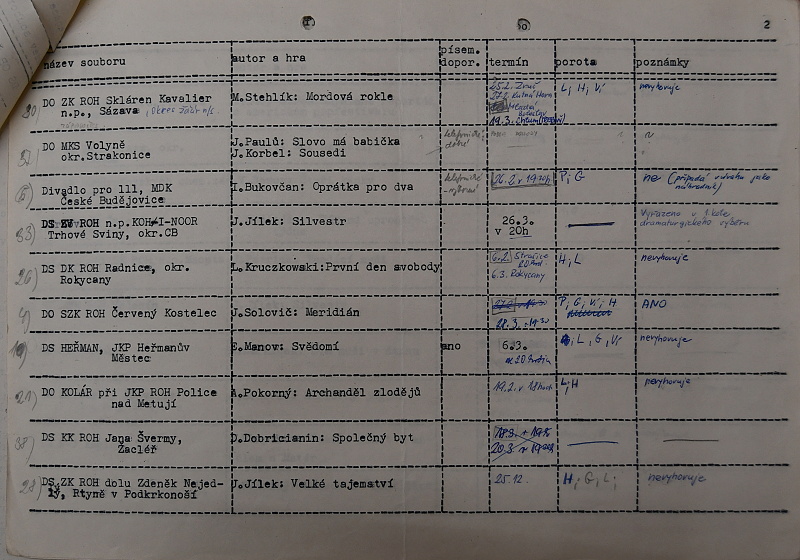 2
název souboru autor a hra písem. dopor. termín porota poznámky
30) DO ZK ROH Skláren Kavalier M.Stehlík: Mordová rokle 25.2. Zruč L, H, Vi nevyhovuje
n.p., Sázava 27.2. Kutná Hora
19.3.
37) DO MKS Volyně J.Paulů: Slovo má babička telefonické
okr.Strakonice J.Korbel: Sousedi
Divadlo pro 111, MDK I.Bukovčan: Oprátka pro dva telefonické 26.2. v 19 P, G ne (případá v úvahu jako
České Budějovice náhradník)
33) DS ZV ROH n.p.KOH-I-NOOR J.Jílek: Silvestr 26.3. Vyřazeno v 1.kole
Trhové Sviny, okr.CB v 20h dramaturgického výběru
26) DS DK ROH Radnice, okr. L.Kruczkowski:První den svobody 6.2. H, L nevyhovuje
Rokycany 6.3. Rokycany
4) DO SZK ROH Červený Kostelec J.Solovič: Meridián P, G, Vi, H ANO
28.3. v 19.30
19) DS HEŘMAN, JKP Heřmanův E.Manow: Svědomí ano 6.3. L, G, Vi nevyhovuje
Městec
21) DO KOLÁR při JKP ROH Police A.Pokorný: Archanděl zlodějů 19.2. v 18 L, H nevyhovuje
nad Metují
38) DS KK ROH Jana Švermy, D.Dobricianin: Společný byt 18.3. v 19
Žacléř 20.3. v 19
28) DS ZK ROH dolu Zdeněk Nejed- J.Jílek: Velké tajemství 25.12. H, G, L, nevyhovuje
lý, Rtyně v Podkrkonoší